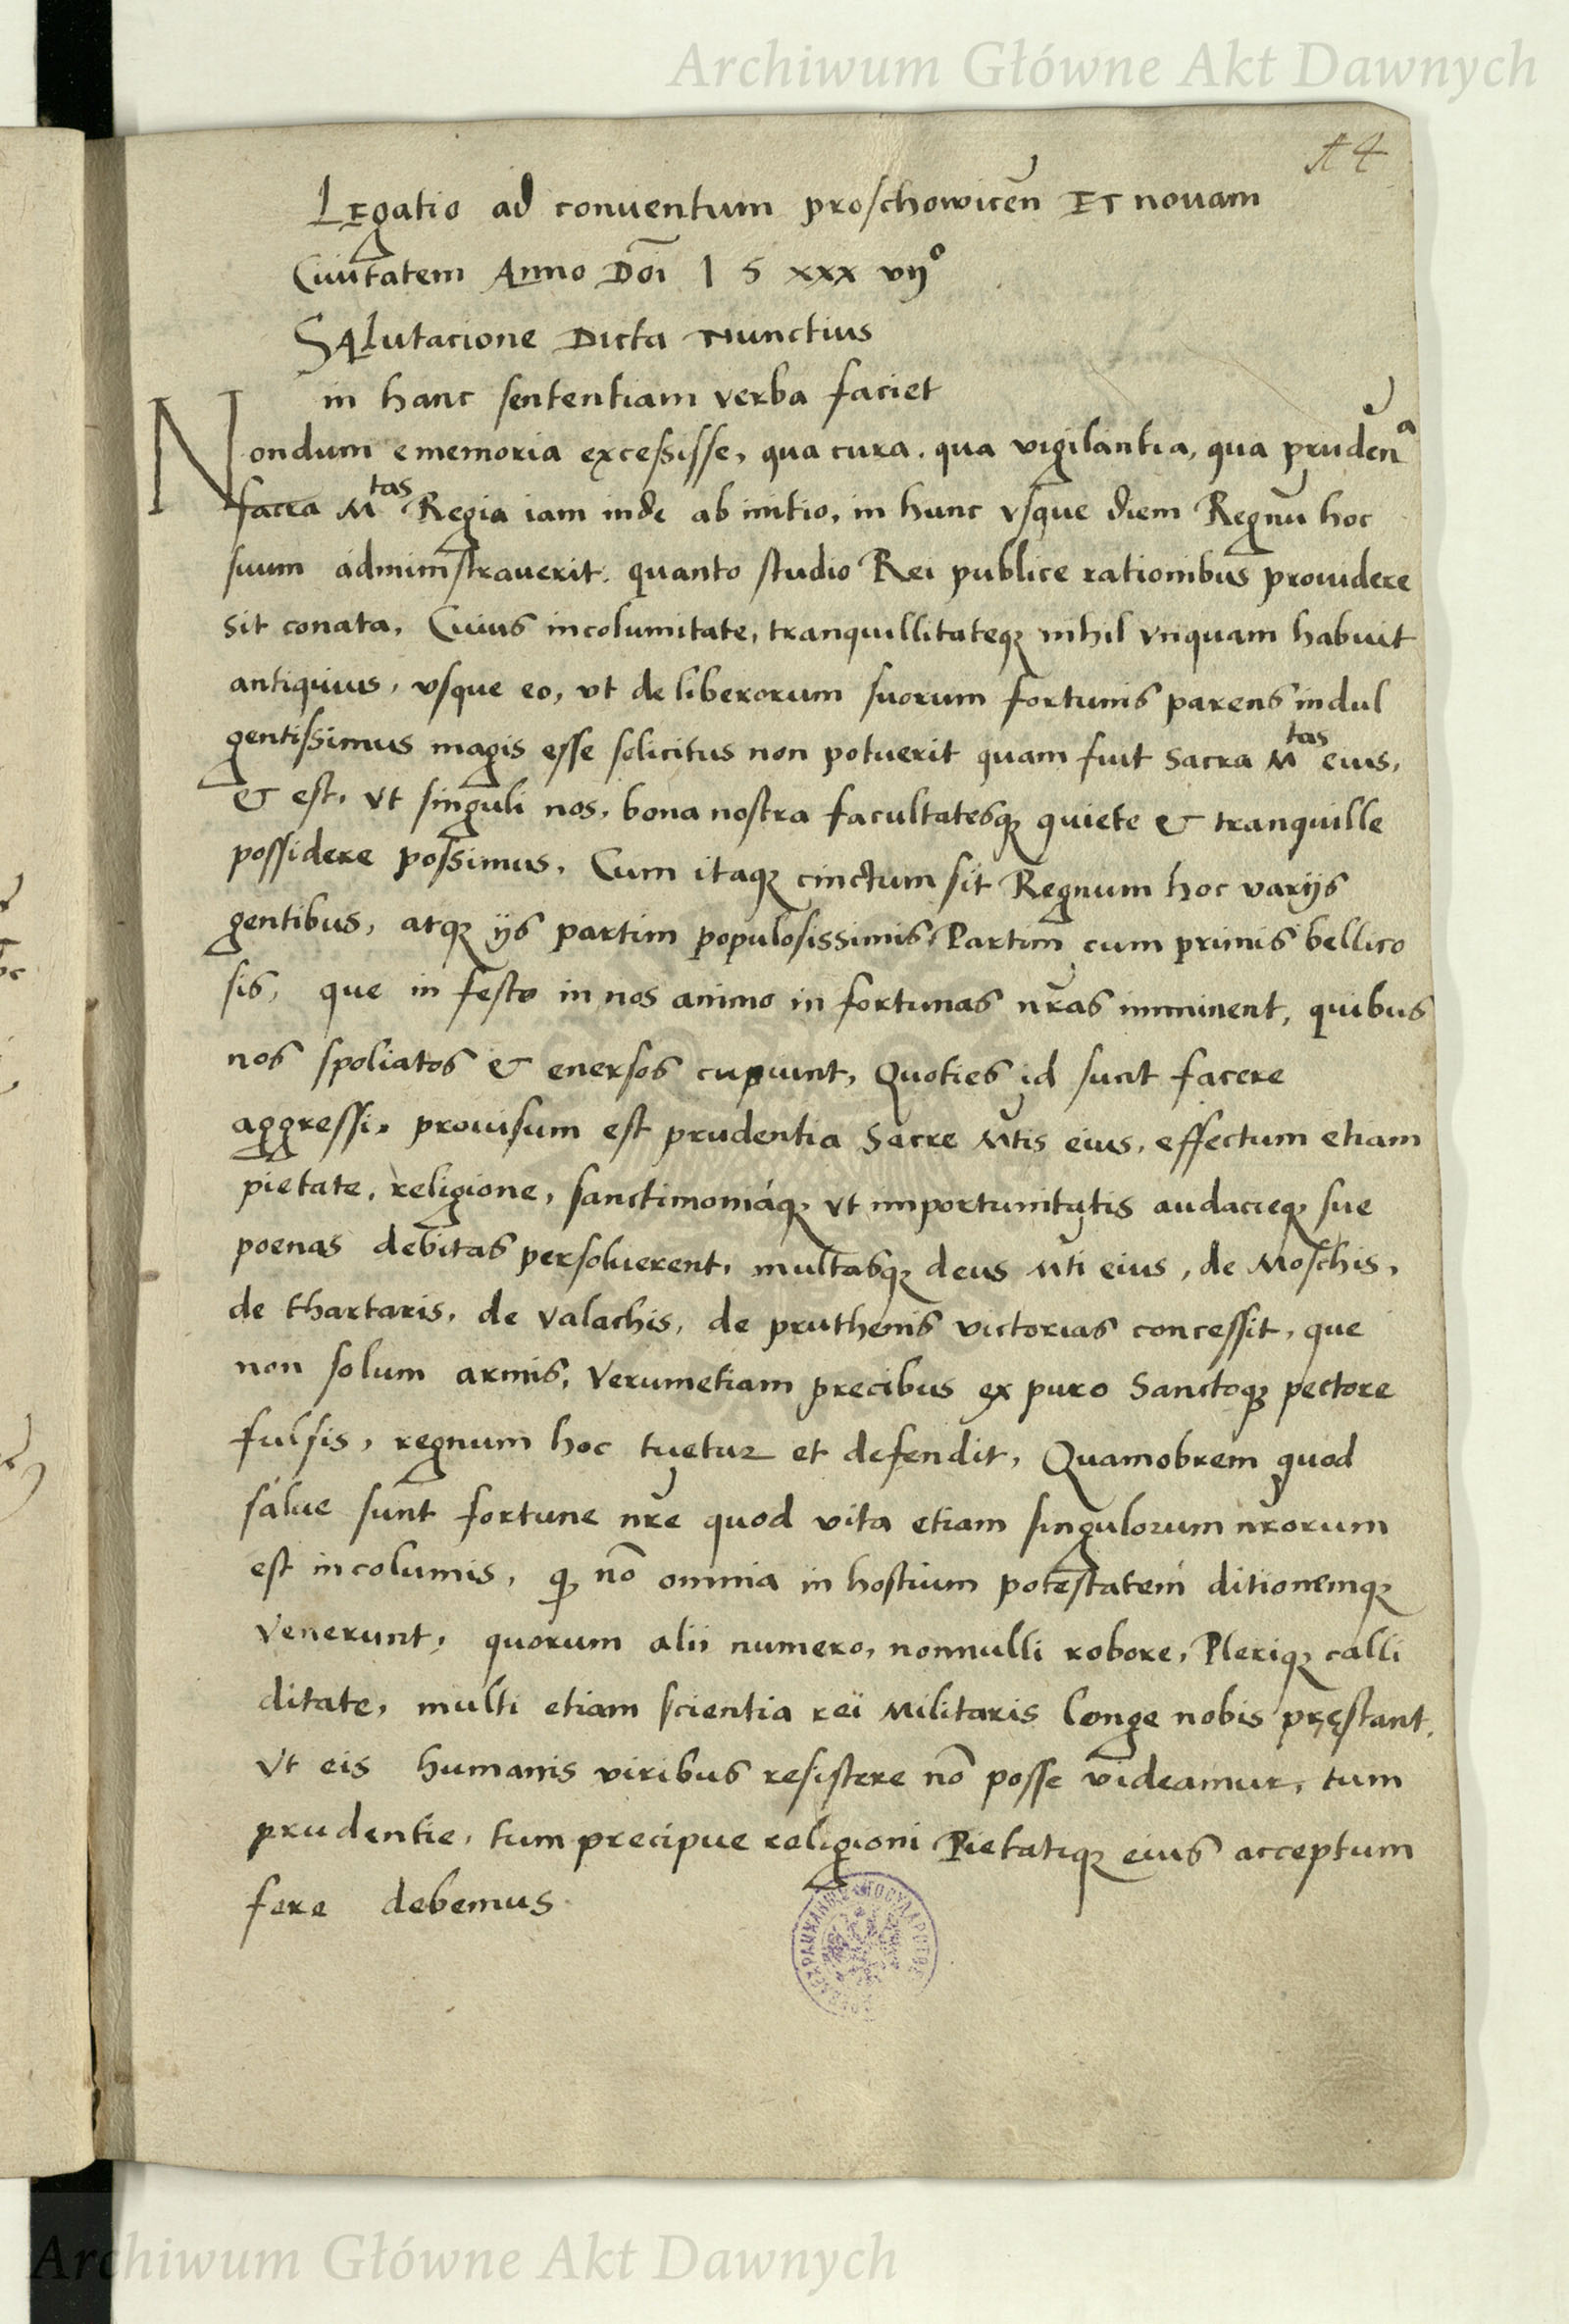 Archiwum Główne Akt Dawnych
14
Legatio ad conuentum proschowicen̄ Et nouam
Ciuitatem Anno Doī 1 5 xxx vijº
Salutacione Dicta Nunctius
in hanc sententiam verba faciet
Nondum e memoria excessisse, qua cura, qua vigilantia, qua pruden̄ᵃ
sacra Mᵗᵃˢ Regia iam inde ab initio, in hunc vsque diem Regnū hoc
suum administrauerit, quanto studio Rei publice rationibus prouidere
sit conata, Cuius incolumitate, tranquillitateqꝫ nihil vnquam habuit
antiquius, vsque eo, vt de liberorum suorum fortunis parens indul
gentissimus magis esse solicitus non potuerit quam fuit Sacra Mᵗᵃˢ eius,
& est, vt singuli nos, bona nostra facultatesqꝫ quiete & tranquille
possidere possimus, Cum itaqꝫ cinctum sit Regnum hoc varijs
gentibus, atqꝫ ijs partim populosissimis, Partim cum primis bellico
sis, que in festo in nos animo in fortunas nr̄as imminent, quibus
nos spoliatos & enersos cupiunt, Quoties id sunt facere
aggressi, prouisum est prudentia Sacre Mt̄is eius, effectum etiam
pietate, religione, sanctimoniáqꝫ vt importunitatis audacieqꝫ sue
poenas debitas persoluerent, multasqꝫ deus Mt̄i eius, de Moschis,
de thartaris, de valachis, de pruthenis victorias concessit, que
non solum armis, verumetiam precibus ex puro Sanctoqꝫ pectore
fulsis, regnum hoc tuetur et defendit, Quamobrem quod
salue sunt fortune nr̄e quod vita etiam singulorum nr̄orum
est incolumis, qꝫ nō omnia in hostium potestatem ditionemqꝫ
venerunt, quorum alii numero, nonnulli robore, Pleriqꝫ calli
ditate, multi etiam scientia rei Militaris longe nobis pręstant,
Vt eis humanis viribus resistere nō posse videamur, tum
prudentie, tum precipue religioni Pietatiqꝫ eius acceptum
fere debemus
Archiwum Główne Akt Dawnych